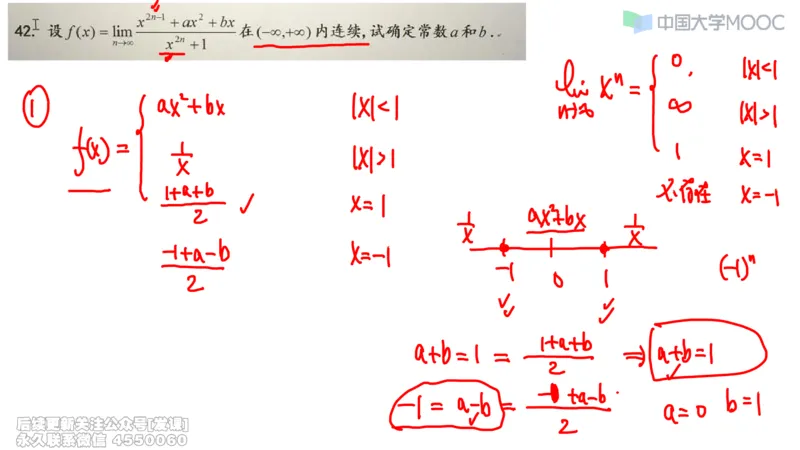 中国大学MOOC
42. 设 f(x) = lim n→∞ (x^(2n-1) + ax² + bx)/(x^(2n) + 1) 在(-∞,+∞)内连续,试确定常数a和b.
①
f(x) = {
ax²+bx |x|<1
1/x |x|>1
(1+a+b)/2 ✓ x=1
(-1+a-b)/2 x=-1
lim n→∞ xⁿ = {
0, |x|<1
∞ |x|>1
1 x=1
不存在 x=-1
1/x ax²+bx 1/x
-1 0 1
(-1)ⁿ
a+b=1 = (1+a+b)/2 ⇒ a+b=1
-1 = a-b = (-1+a-b)/2
a=0 b=1
后续更新关注公众号[发课]
永久联系微信 4550060